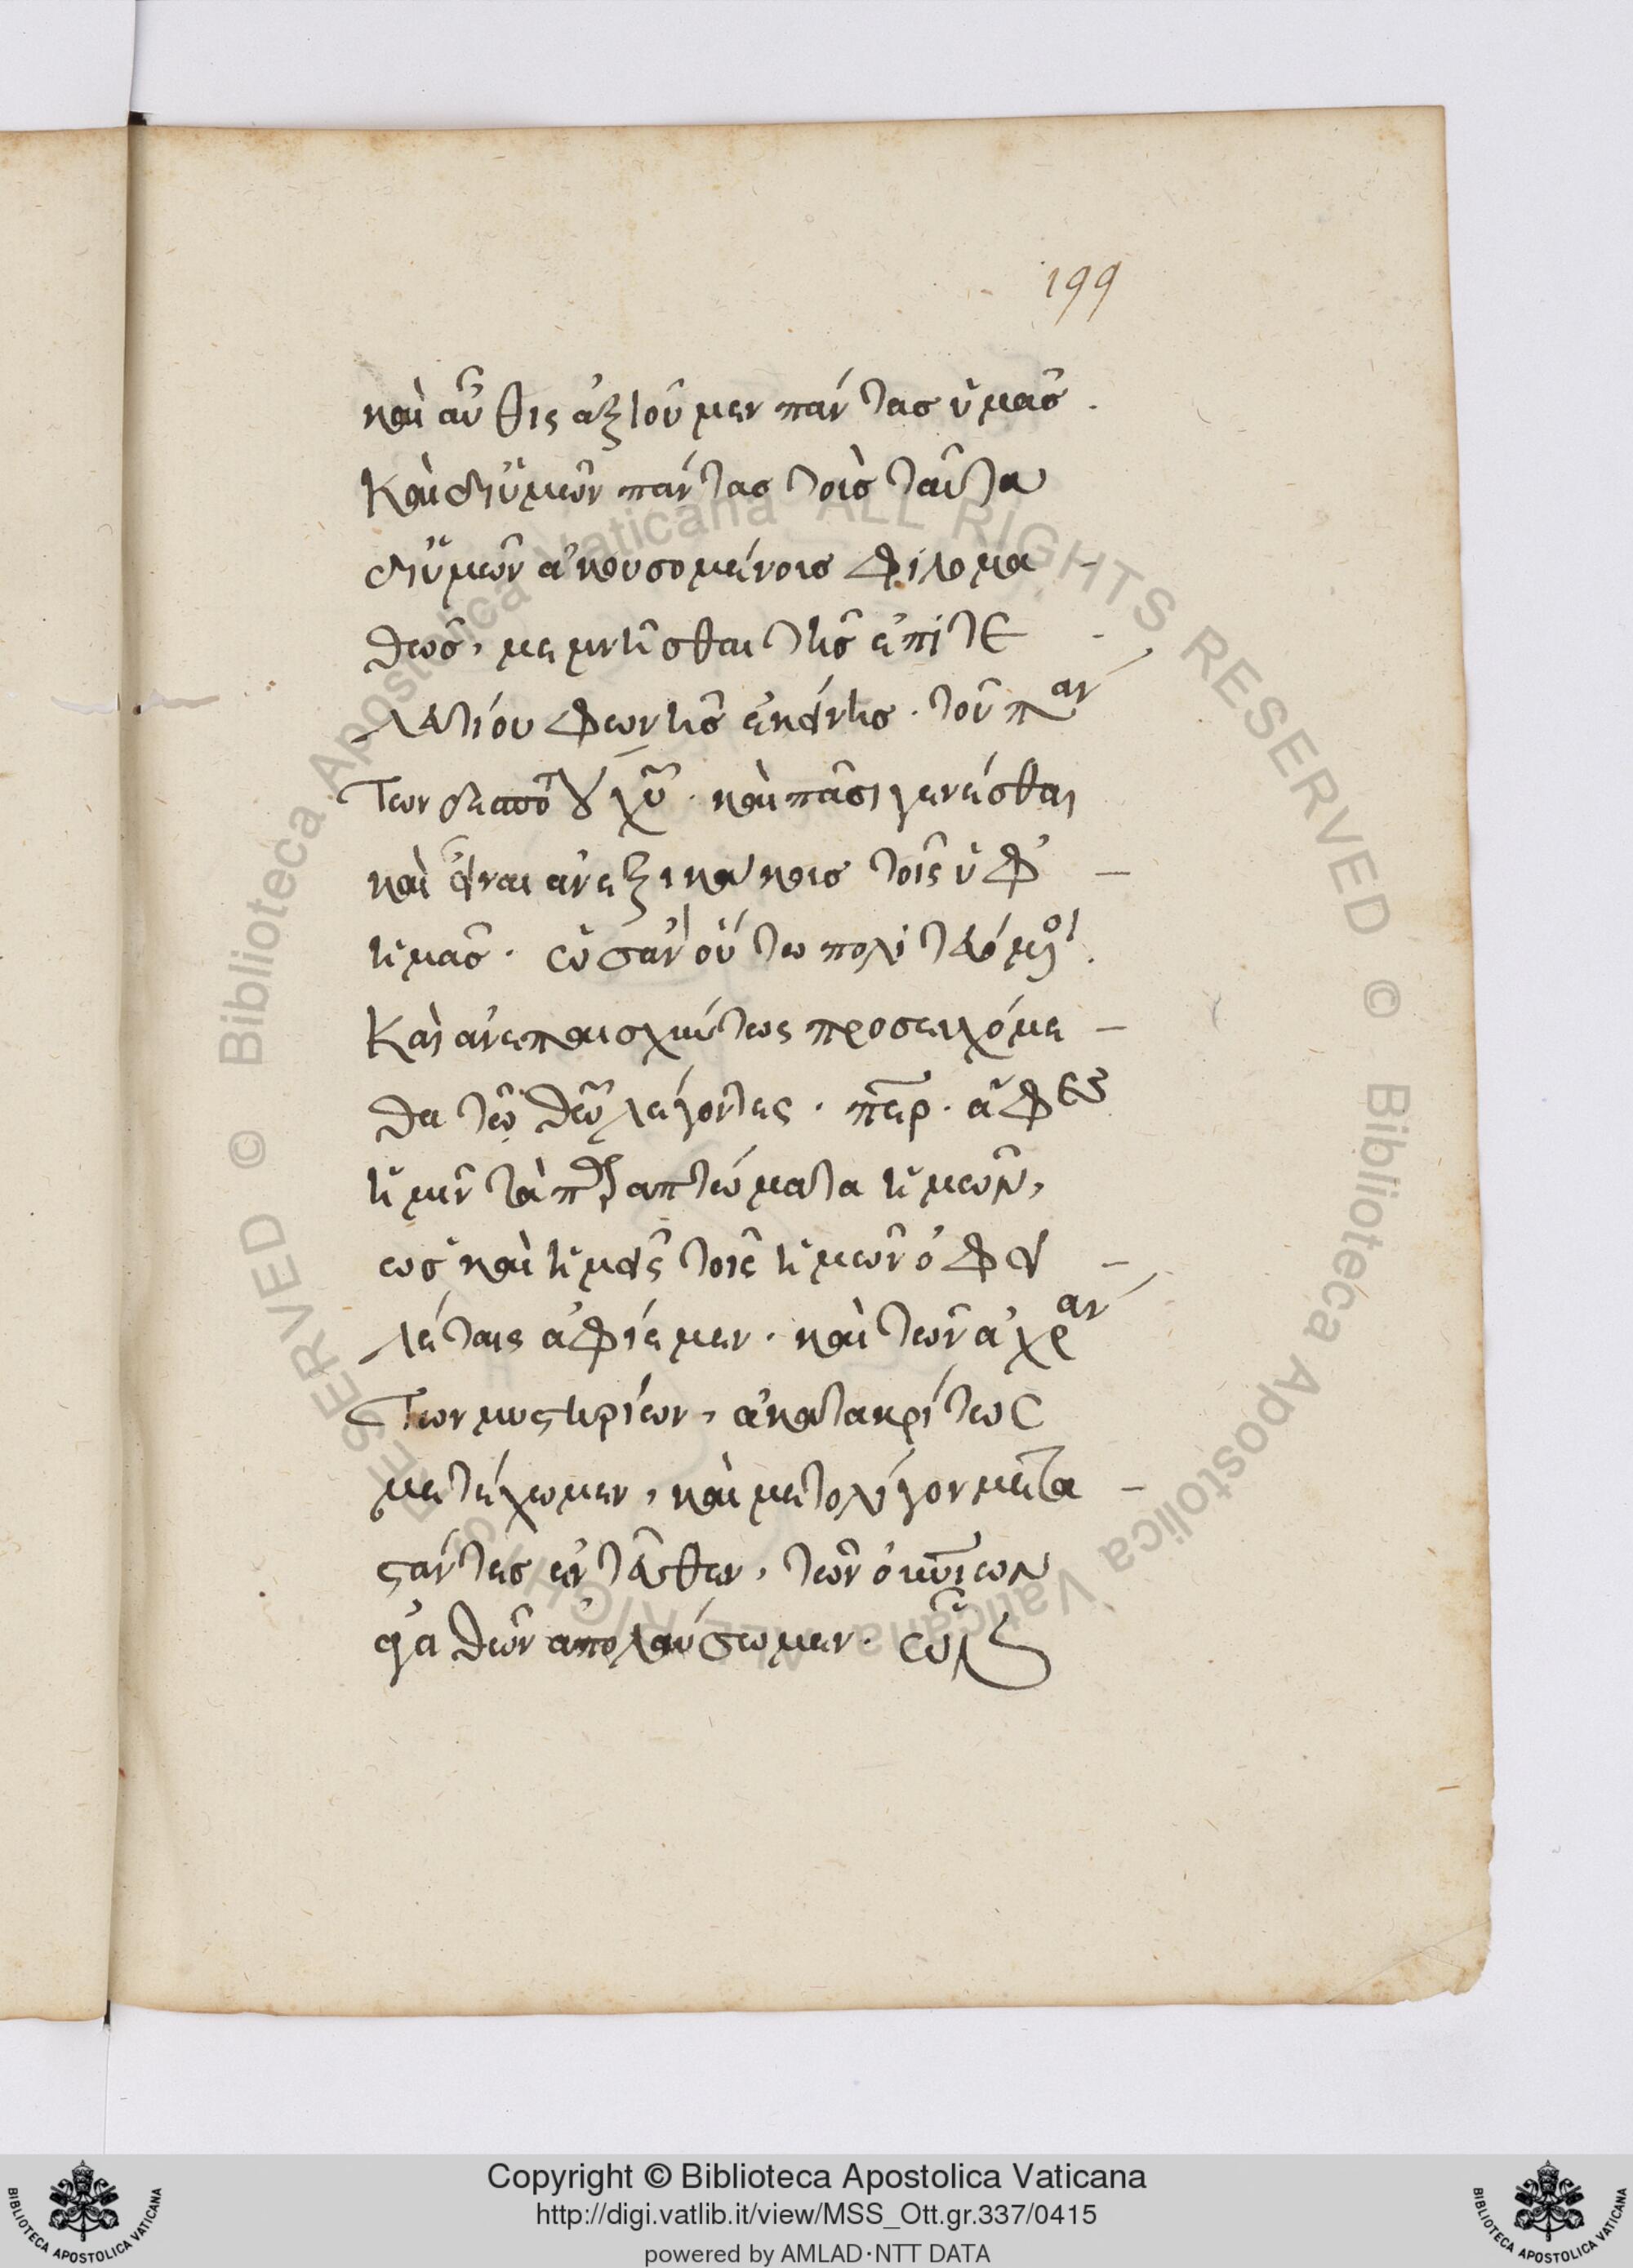 199
καὶ αὖθις ἀξιοῦμεν πάντας ὑμᾶς.
Καὶ δι ὑμῶν πάντας τοὺς ταῦτα
δι ὑμῶν ἀκουσομένοις φιλομα-
θῶς, μεμνῆσθαι τῆς ἐπὶ τε-
λευτίου φωνῆς ἐκείνης. τοῦ πάν
των δεσπό ου χυ. καὶ πᾶσι γενέσθαι
καὶ εἶναι ἀνεξικάκοις τοῖς ὑφ -
ἡμᾶς. ὡς ἂν οὕτω πολιτευόμνοι.
Καὶ ἀνεπαισχύντως προσευχόμε-
θα τῶ θῶ λέγοντες. περ. ἄφες
ἡμῖν τὰ παραπτώματα ἡμῶν,
ὡς καὶ ἡμεῖς τοῖς ἡμῶν ὀφει-
λέταις ἀφίεμεν. καὶ τῶν ἀχράν
των μυστηρίων, ἀκατακρίτως
μετέχωμεν, καὶ μετολίγον μετα-
στάντες ἐντεῦθεν, τῶν οὐνίων
ἀγαθῶν ἀπολαύσωμεν.
Copyright © Biblioteca Apostolica Vaticana
http://digi.vatlib.it/view/MSS_Ott.gr.337/0415
powered by AMLAD·NTT DATA
BIBLIOTECA APOSTOLICA VATICANA
BIBLIOTECA APOSTOLICA VATICANA
© Biblioteca Apostolica Vaticana ALL RIGHTS RESERVED © Biblioteca Apostolica Vaticana ALL RIGHTS RESERVED